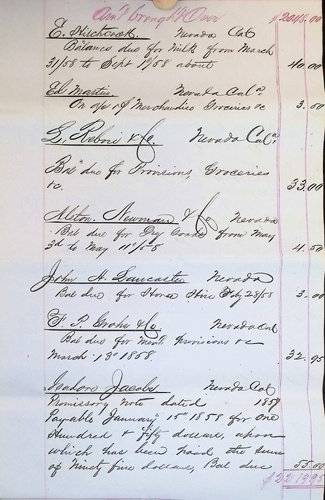 Am't brought Over $2018.00
E. Hitchcock Nevada Cal
Balance due for Milk from March
31/58 to Sept 1st/58 about 40.00
El Martin Nevada Cal.
On a/c of Merchandise Groceries &c 3.00
& Co. Nevada Cal.
Bal due for Provisions, Groceries
&c. 33.00
Newman & Co Nevada
Bal due for Dry Goods from May
3d to May 4.50
John A. Lancaster Nevada
Bal due for Horse Hire Feby 28/58 3.00
& Co Nevada Cal
Bal due for Provisions &c
March 13th 1858. 32.95
Isadore Jacobs Nevada Cal
Promissory Note dated 1857
Payable January 15th 1858 for One
Hundred & fifty dollars, upon
which has been paid the sum
of Ninety five dollars, Bal due 55.00